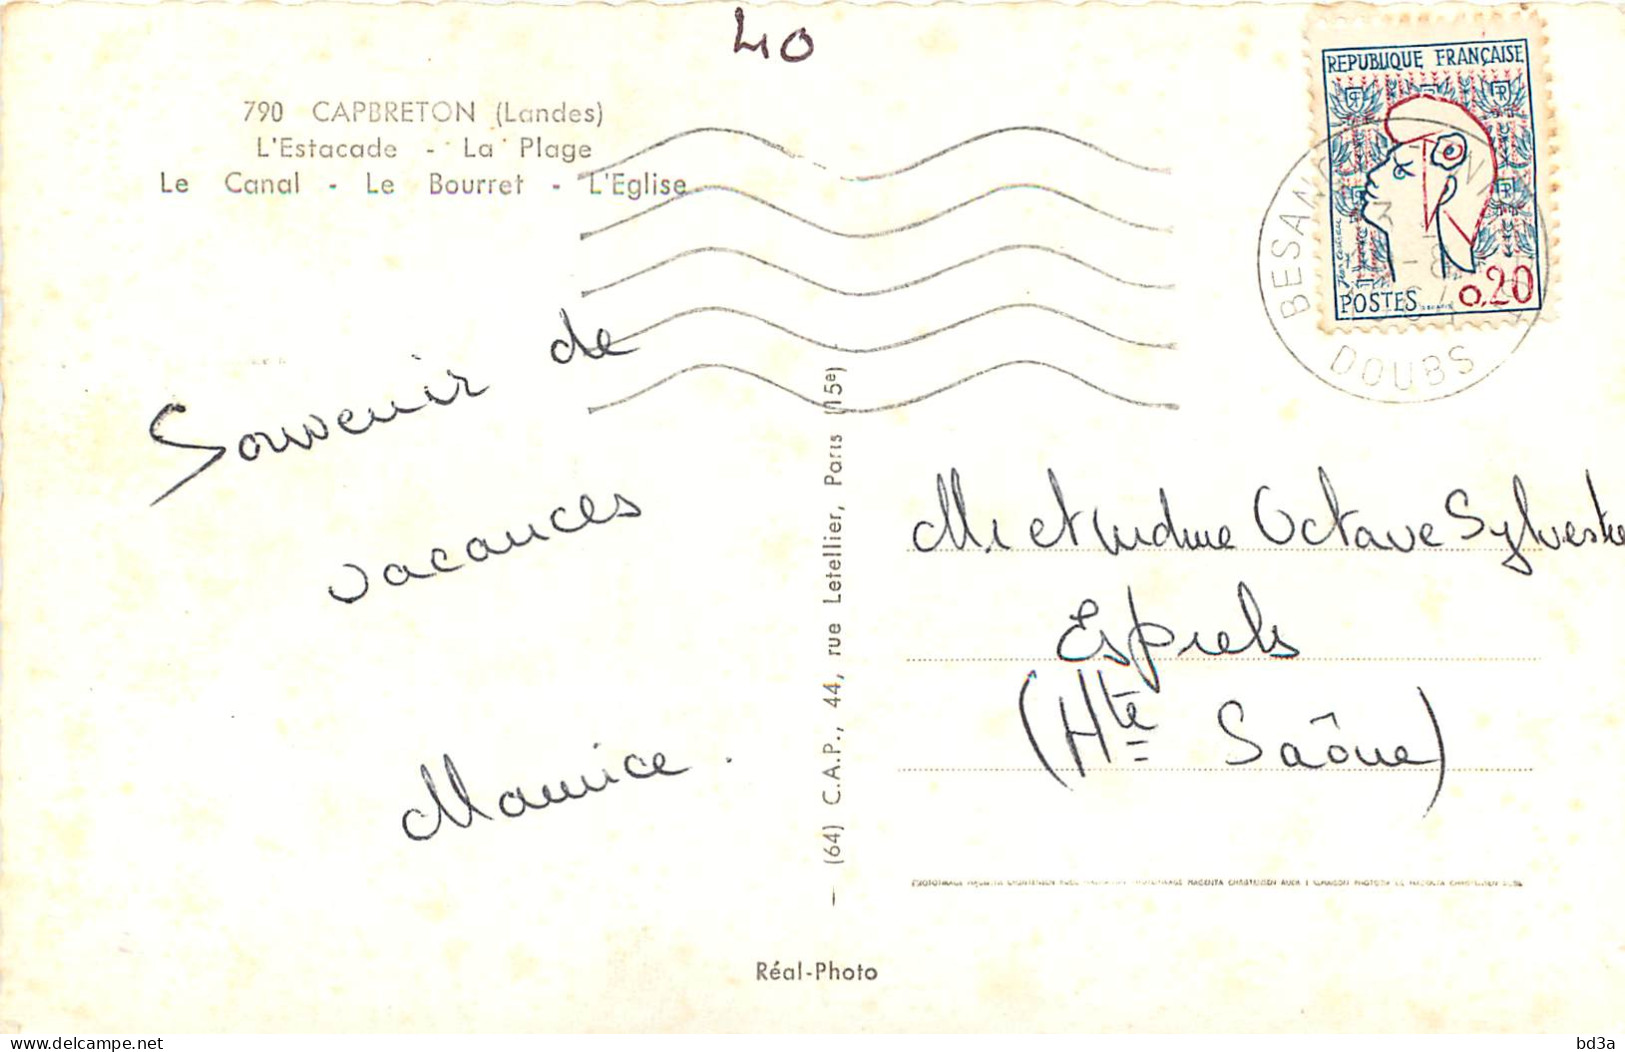 40
790 CAPBRETON (Landes)
L'Estacade - La Plage
Le Canal - Le Bourret - L'Eglise
REPUBLIQUE FRANÇAISE
POSTES 0,20
BESANÇON
DOUBS
Souvenir de
vacances
Maurice.
(64) C.A.P., 44, rue Letellier, Paris (15e)
Mr et Mdme Octave Sylvestre
Esprels
(Hte Saône)
Réal-Photo
www.delcampe.net
bd3a